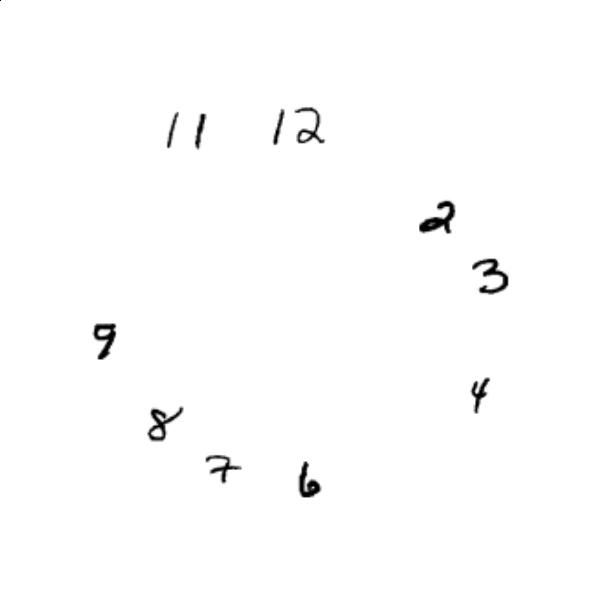 11 12
2
3
9
4
8
7 6